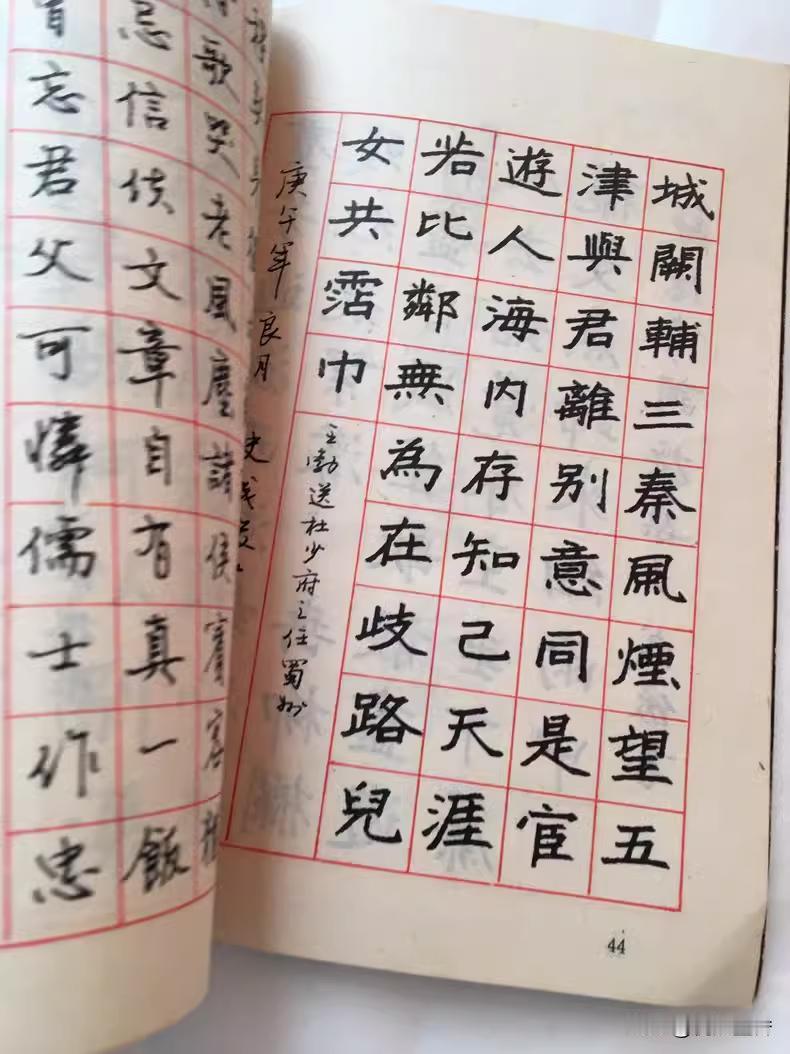 城闕輔三秦風煙望五
津與君離別意同是宦
遊人海内存知己天涯
若比鄰無為在歧路兒
女共霑巾
王勃送杜少府之任蜀州
庚午年良月 史
歌哭老風塵諸侯賓客
忌信文章自有真一飯
忘君父可憐儒士作忠
44